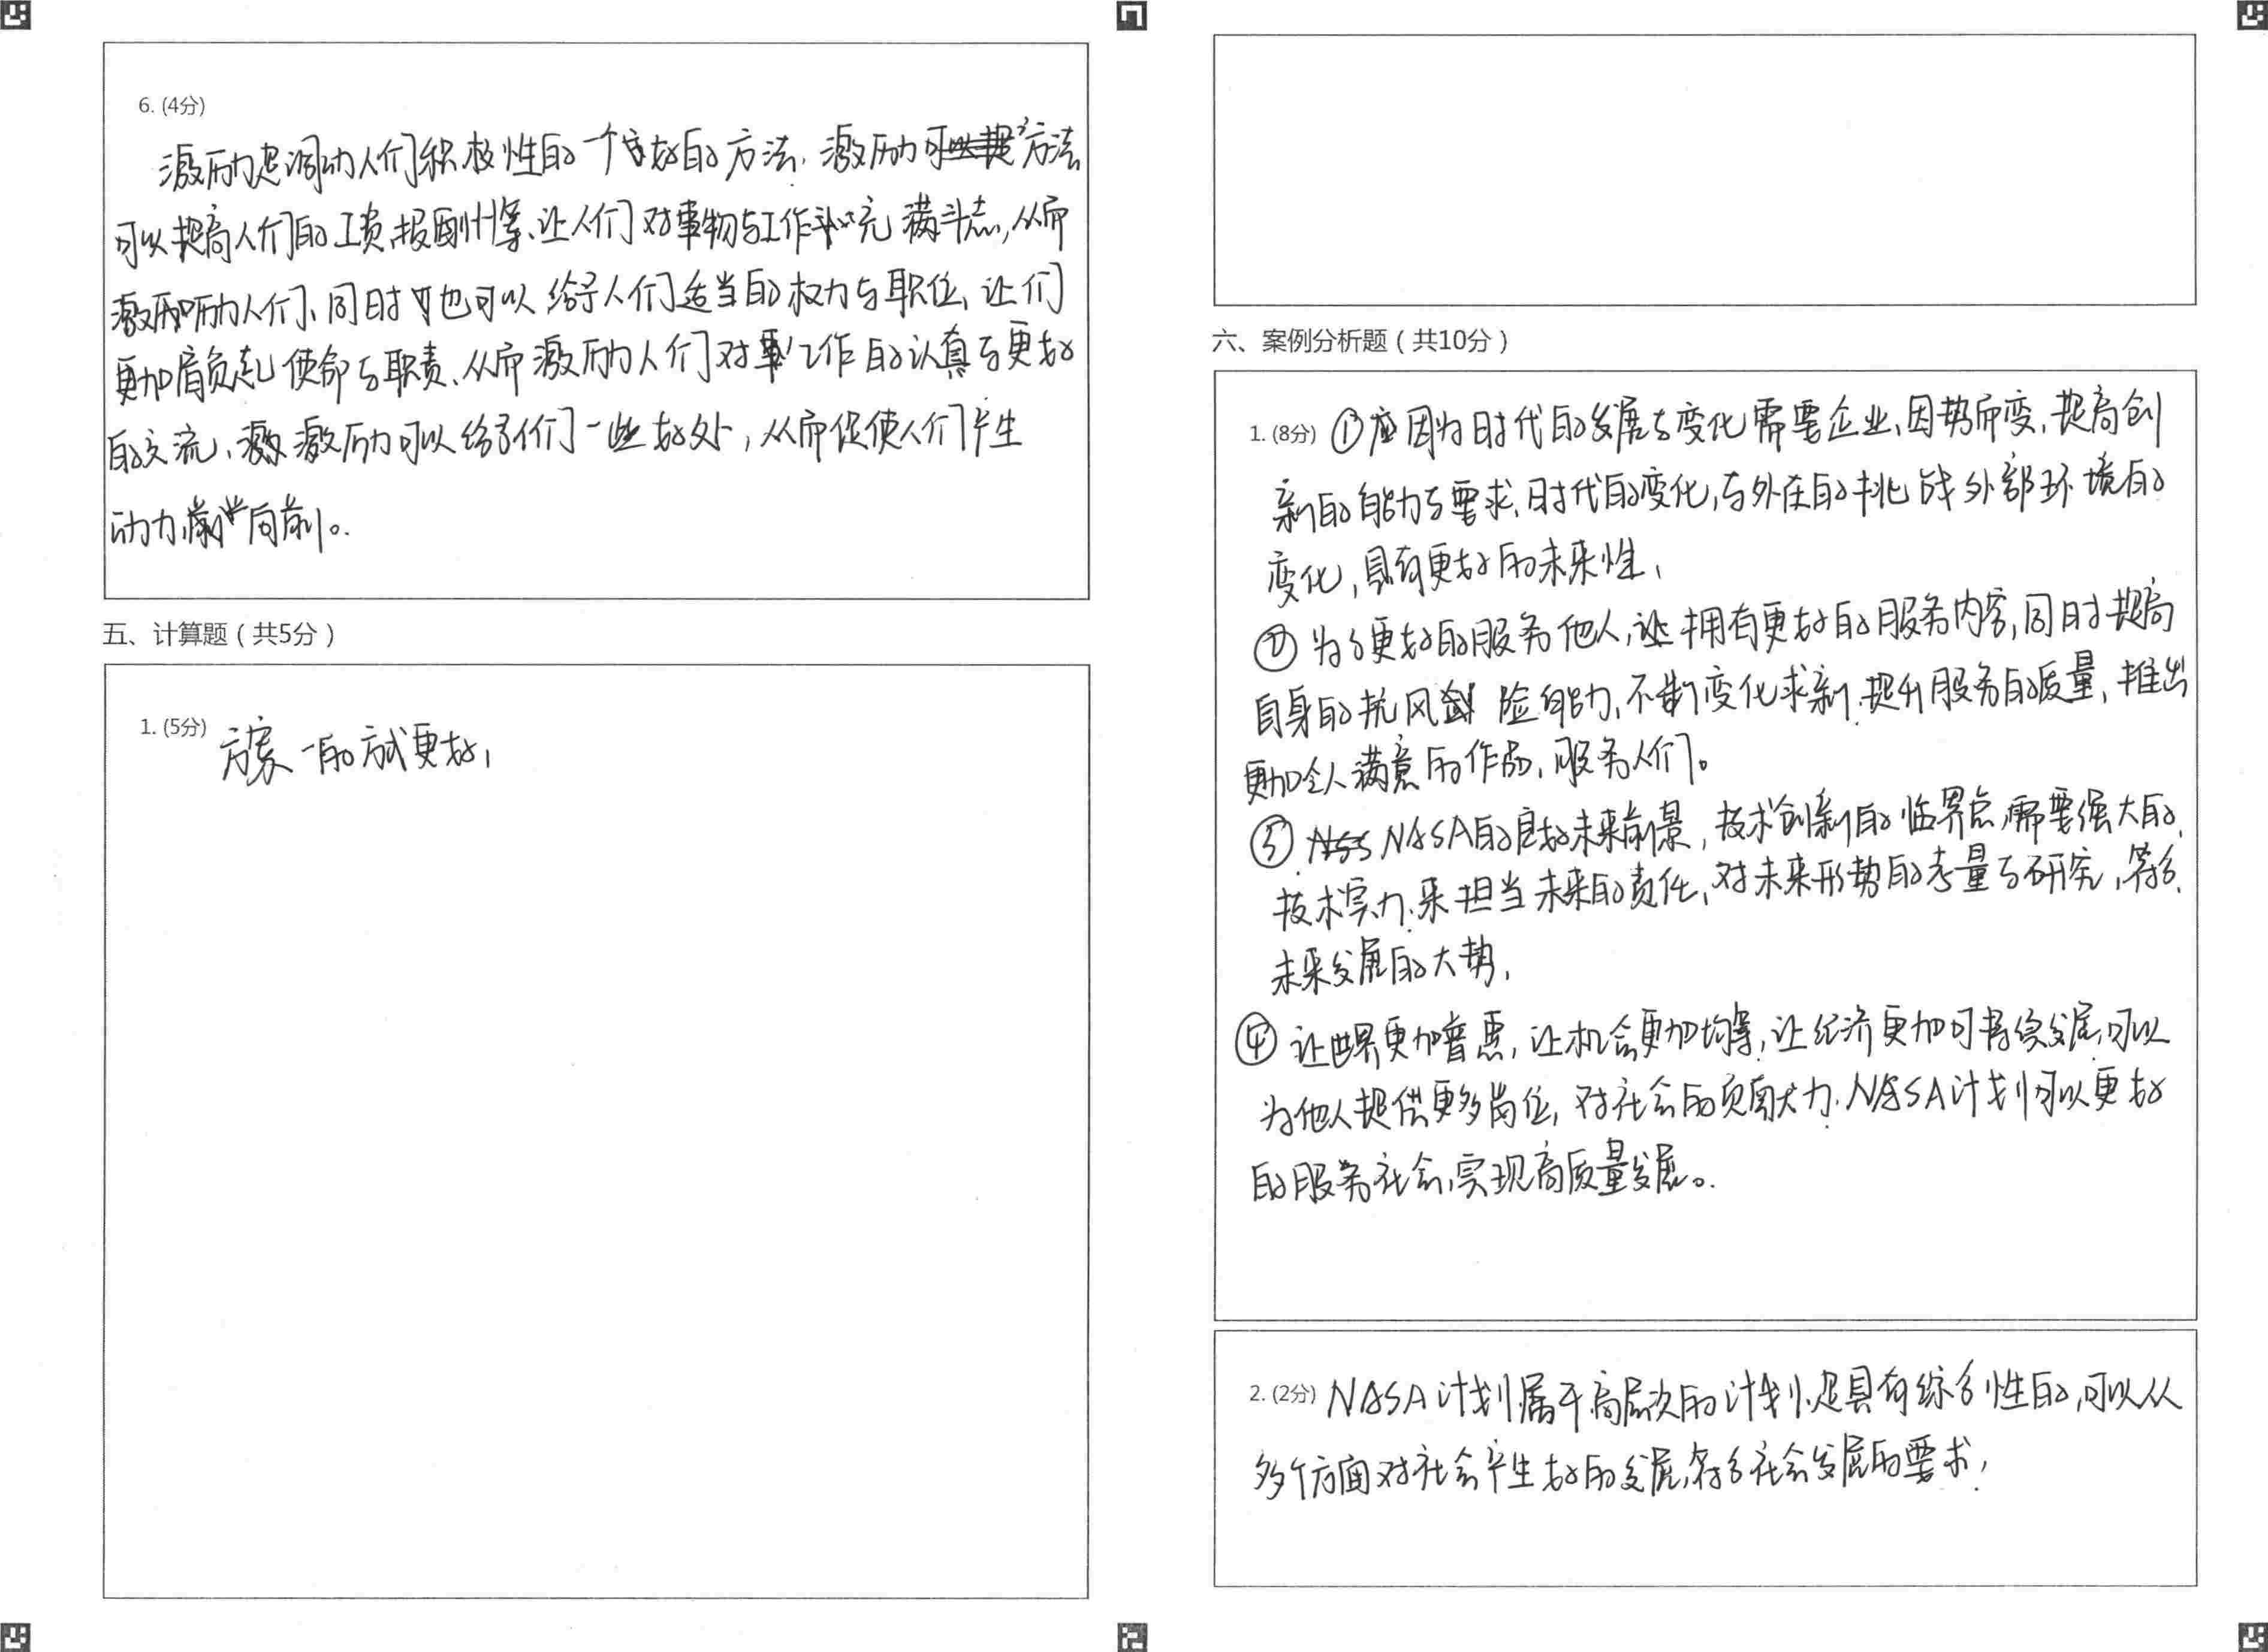 6. (4分)
激励是调动人们积极性的一个好的方法. 激励方法
可以提高人们的工资、报酬等、让人们对事物与工作充满斗志, 从而
激励人们、同时也可以给予人们适当的权力与职位、让们
更加肩负起使命与职责、从而激励人们对工作的认真与更好
的交流、激励可以给予人们一些好处, 从而促使人们产生
动力向前。
五、计算题（共5分）
1. (5分) 方案一的方式更好,
六、案例分析题（共10分）
1. (8分) ①因为时代的发展与变化需要企业、因势而变、提高创
新的能力与要求、时代的变化,与外在的挑战外部环境的
变化, 具有更好的未来性、
② 为了更好的服务他人, 拥有更好的服务内容, 同时提高
自身的抗风险能力、不断变化求新、提升服务的质量、推出
更加令人满意的作品、服务人们。
③ NASA的良好未来前景, 技术创新的临界点,需要强大的
技术实力、来担当未来的责任、对未来形势的考量与研究,符合
未来发展的大势,
④ 让世界更加普惠, 让机会更加均等, 让经济更加可持续发展,可以
为他人提供更多岗位, 对社会的贡献大力. NASA计划可以更好
的服务社会,实现高质量发展。
2. (2分) NASA计划属于高层次的计划、是具有综合性的,可以从
多个方面对社会产生好的发展,符合社会发展的要求,